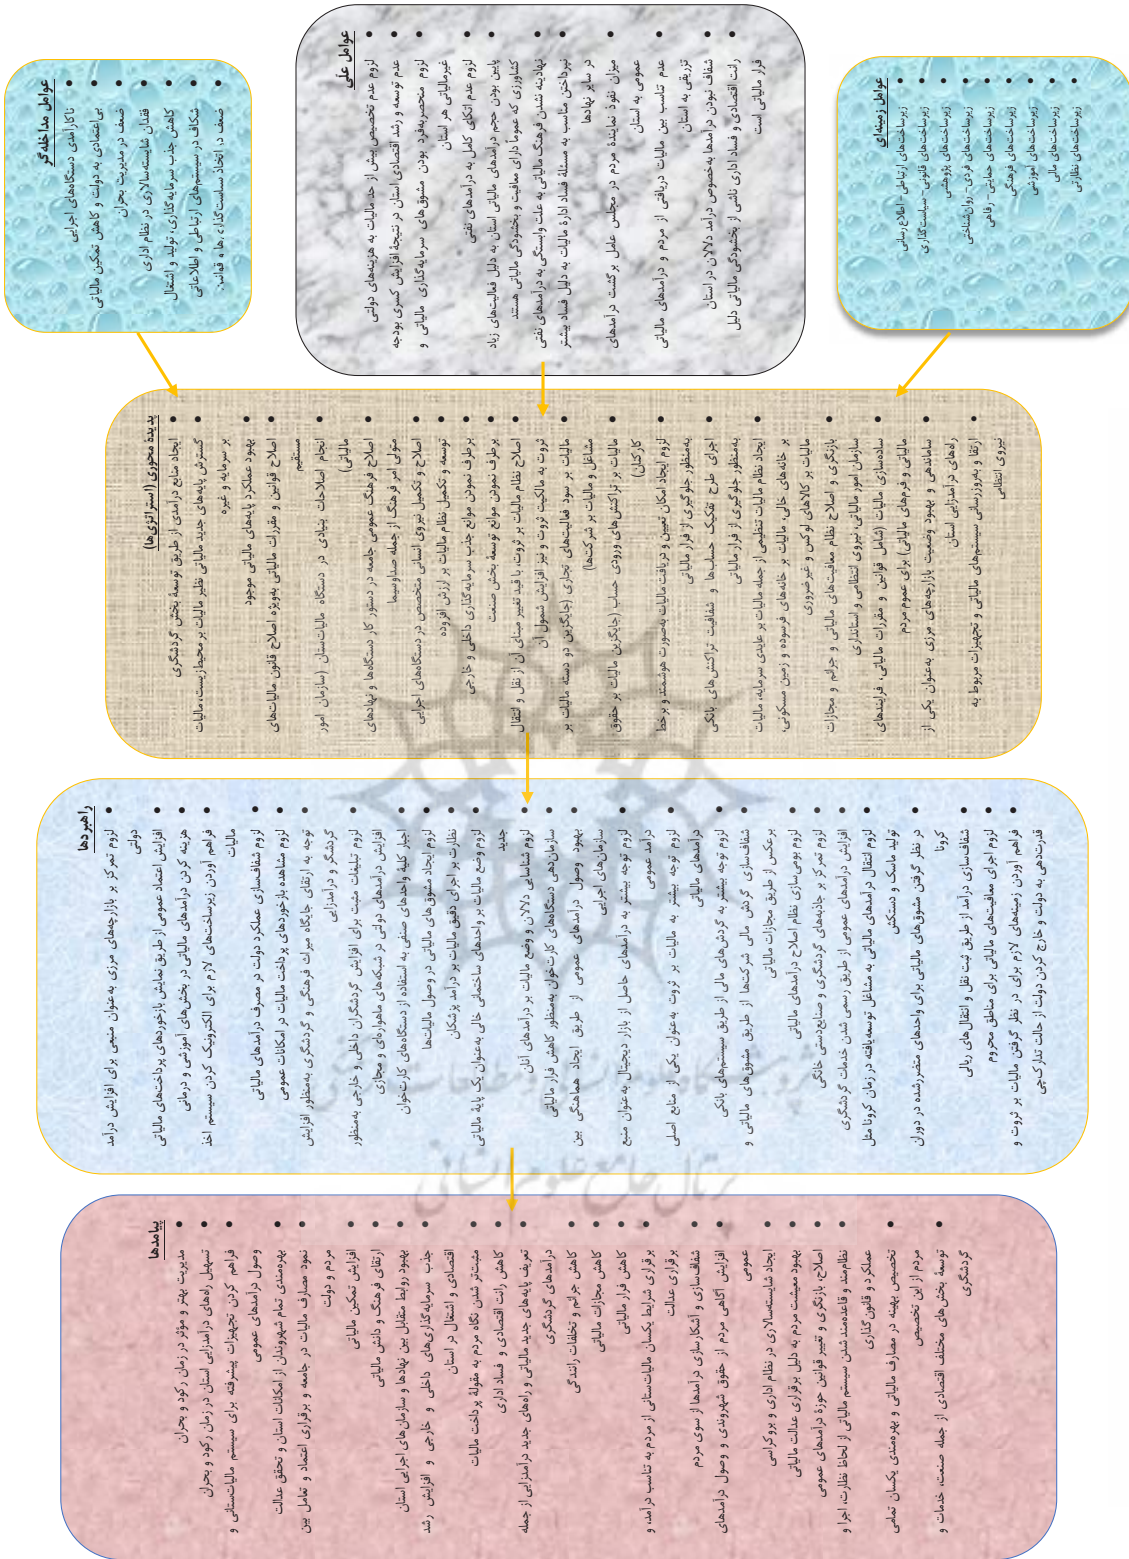 عوامل زمینه‌ای
زیرساخت‌های ارتباطی - اطلاع رسانی
زیرساخت‌های قانونی- سیاست‌گذاری
زیرساخت‌های پژوهشی
زیرساخت‌های فردی- روان‌شناختی
زیرساخت‌های حمایتی- رفاهی
زیرساخت‌های فرهنگی
زیرساخت‌های آموزشی
زیرساخت‌های مالی
زیرساخت‌های نظارتی
عوامل علّی
لزوم عدم تخصیص بیش از حد مالیات به هزینه‌های دولتی
عدم توسعه و رشد اقتصادی استان در نتیجۀ افزایش کسری بودجه
لزوم منحصربه‌فرد بودن مشوق‌های سرمایه‌گذاری مالیاتی و
غیرمالیاتی هر استان
پایین بودن حجم درآمدهای مالیاتی استان به دلیل فعالیت‌های زیاد
کشاورزی که عموماً دارای معافیت و بخشودگی مالیاتی هستند
لزوم عدم اتکای کامل به درآمدهای نفتی
نهادینه نشدن فرهنگ مالیاتی به علت وابستگی به درآمدهای نفتی
نپرداختن مناسب به مسئلۀ فساد ادارۀ مالیات به دلیل فساد بیشتر
در سایر نهادها
میزان نفوذ نمایندۀ مردم در مجلس عامل برگشت درآمدهای
عمومی به استان
عدم تناسب بین مالیات دریافتی از مردم و درآمدهای مالیاتی
تزریقی به استان
شفاف نبودن درآمدها به‌خصوص درآمد دلالان در استان
رانت اقتصادی و فساد اداری ناشی از بخشودگی مالیاتی دلیل
فرار مالیاتی است
عوامل مداخله‌گر
ناکارآمدی دستگاه‌های اجرایی
بی‌اعتمادی به دولت و کاهش تمکین مالیاتی
ضعف در مدیریت بحران
فقدان شایسته‌سالاری در نظام اداری
کاهش جذب سرمایه‌گذاری، تولید و اشتغال
شکاف در سیستم‌های ارتباطی و اطلاعاتی
ضعف در اتخاذ سیاست‌گذاری‌ها و قوانین
پدیده محوری (استراتژی‌ها)
ایجاد منابع درآمدی از طریق توسعۀ بخش گردشگری
گسترش پایه‌های جدید مالیاتی نظیر مالیات بر محیط‌زیست، مالیات
بر سرمایه و غیره
بهبود عملکرد پایه‌های مالیاتی موجود
اصلاح قوانین و مقررات مالیاتی به‌ویژه اصلاح قانون مالیات‌های
مستقیم
انجام اصلاحات بنیادی در دستگاه مالیات‌ستان (سازمان امور
مالیاتی)
اصلاح فرهنگ عمومی جامعه در دستور کار دستگاه‌ها و نهادهای
متولی امر فرهنگ از جمله صداوسیما
اصلاح و تکمیل نیروی انسانی متخصص در دستگاه‌های اجرایی
توسعه و تکمیل نظام مالیات بر ارزش افزوده
برطرف نمودن موانع جذب سرمایه‌گذاری داخلی و خارجی
برطرف نمودن موانع توسعۀ بخش صنعت
اصلاح نظام مالیات بر ثروت، با قید تغییر مبنای آن از نقل و انتقال
ثروت به مالکیت ثروت و نیز افزایش شمول آن
مالیات بر سود فعالیت‌های تجاری (جایگزین دو دسته مالیات بر
مشاغل و مالیات بر شرکت‌ها)
مالیات بر تراکنش‌های ورودی حساب (جایگزین مالیات بر حقوق
کارکنان)
لزوم ایجاد امکان تعیین و دریافت مالیات به‌صورت هوشمند و برخط
به‌منظور جلوگیری از فرار مالیاتی
اجرای طرح تفکیک حساب‌ها و شفافیت تراکنش‌های بانکی
به‌منظور جلوگیری از فرار مالیاتی
ایجاد نظام مالیات تنظیمی از جمله مالیات بر عایدی سرمایه، مالیات
بر خانه‌های خالی، مالیات بر خانه‌های فرسوده و زمین مسکونی،
مالیات بر کالاهای لوکس و غیرضروری
بازنگری و اصلاح نظام معافیت‌های مالیاتی و جرائم و مجازات
سازمان امور مالیاتی، نیروی انتظامی و استانداری
ساده‌سازی مالیات (شامل قوانین و مقررات مالیاتی، فرایندهای
مالیاتی و فرم‌های مالیاتی) برای عموم مردم
ساماندهی و بهبود وضعیت بازارچه‌های مرزی به‌عنوان یکی از
راه‌های درآمدزایی استان
ارتقا و به‌روزرسانی سیستم‌های مالیاتی و تجهیزات مربوط به
نیروی انتظامی
راهبردها
لزوم تمرکز بر بازارچه‌های مرزی به‌عنوان منبعی برای افزایش درآمد
دولتی
افزایش اعتماد عمومی از طریق نمایش بازخوردهای پرداخت‌های مالیاتی
هزینه کردن درآمدهای مالیاتی در بخش‌های آموزشی و درمانی
فراهم آوردن زیرساخت‌های لازم برای الکترونیک کردن سیستم اخذ
مالیات
لزوم شفاف‌سازی عملکرد دولت در مصرف درآمدهای مالیاتی
لزوم مشاهده بازخوردهای پرداخت مالیات در امکانات عمومی
توجه به ارتقای جایگاه میراث فرهنگی و گردشگری به‌منظور افزایش
گردشگر و درآمدزایی
لزوم تبلیغات مثبت برای افزایش گردشگران داخلی و خارجی به‌منظور
افزایش درآمدهای دولتی در شبکه‌های ماهواره‌ای و مجازی
اجبار کلیۀ واحدهای صنفی به استفاده از دستگاه‌های کارت‌خوان
نظارت بر اجرای دقیق مالیات بر درآمد پزشکان
لزوم ایجاد مشوق‌های مالیاتی در وصول مالیات‌ها
لزوم وضع مالیات بر واحدهای ساختمانی خالی به‌عنوان یک پایۀ مالیاتی
جدید
لزوم شناسایی دلالان و وضع مالیات بر درآمدهای آنان
سازمان‌دهی دستگاه‌های کارت‌خوان به‌منظور کاهش فرار مالیاتی
بهبود وصول درآمدهای عمومی از طریق ایجاد هماهنگی بین
سازمان‌های اجرایی
لزوم توجه بیشتر به درآمدهای حاصل از بازار دیجیتال به‌عنوان منبع
درآمد عمومی
لزوم توجه بیشتر به مالیات بر ثروت به‌عنوان یکی از منابع اصلی
درآمدهای مالیاتی
لزوم توجه بیشتر به گردش‌های مالی از طریق سیستم‌های بانکی
شفاف‌سازی گردش مالی شرکت‌ها از طریق مشوق‌های مالیاتی و
برعکس از طریق مجازات مالیاتی
لزوم بومی‌سازی نظام اصلاح درآمدهای مالیاتی
لزوم تمرکز بر جاذبه‌های گردشگری و صنایع‌دستی خانگی
افزایش درآمدهای عمومی از طریق رسمی شدن خدمات گردشگری
لزوم انتقال درآمدهای مالیاتی به مشاغل توسعه‌یافته در زمان کرونا مثل
تولید ماسک و دستکش
در نظر گرفتن مشوق‌های مالیاتی برای واحدهای متضررشده در دوران
کرونا
شفاف‌سازی درآمد از طریق ثبت نقل و انتقال‌های ریالی
لزوم اجرای معافیت‌های مالیاتی برای مناطق محروم
فراهم آوردن زمینه‌های لازم برای در نظر گرفتن مالیات بر ثروت و
قدرت‌دهی به دولت و خارج کردن دولت از حالت تدارک‌چی
پیامدها
مدیریت بهتر و مؤثر در زمان رکود و بحران
تسهیل راه‌های درآمدزایی استان در زمان رکود و بحران
فراهم کردن تجهیزات پیشرفته برای سیستم مالیات‌ستانی و
وصول درآمدهای عمومی
بهره‌مندی تمام شهروندان از امکانات استان و تحقق عدالت
نمود مصارف مالیات در جامعه و برقراری اعتماد و تعامل بین
مردم و دولت
افزایش تمکین مالیاتی
ارتقای فرهنگ و دانش مالیاتی
بهبود روابط متقابل بین نهادها و سازمان‌های اجرایی استان
جذب سرمایه‌گذاری‌های داخلی و خارجی و افزایش رشد
اقتصادی و اشتغال در استان
مثبت‌تر شدن نگاه مردم به مقولۀ پرداخت مالیات
کاهش رانت اقتصادی و فساد اداری
تعریف پایه‌های جدید مالیاتی و راه‌های جدید درآمدزایی از جمله
درآمدهای گردشگری
کاهش جرائم و تخلفات رانندگی
کاهش مجازات مالیاتی
کاهش فرار مالیاتی
برقراری شرایط یکسان مالیات‌ستانی از مردم به تناسب درآمد، و
برقراری عدالت
شفاف‌سازی و آشکارسازی درآمدها از سوی مردم
افزایش آگاهی مردم از حقوق شهروندی و وصول درآمدهای
عمومی
ایجاد شایسته‌سالاری در نظام اداری و بروکراسی
بهبود معیشت مردم به دلیل برقراری عدالت مالیاتی
اصلاح، بازنگری و تغییر قوانین حوزۀ درآمدهای عمومی
نظام‌مند و قاعده‌مند شدن سیستم مالیاتی از لحاظ نظارت، اجرا و
عملکرد و قانون‌گذاری
تخصیص بهینه در مصارف مالیاتی و بهره‌مندی یکسان تمامی
مردم از این تخصیص
توسعۀ بخش‌های مختلف اقتصادی از جمله صنعت، خدمات و
گردشگری
پرتال جامع علوم انسانی